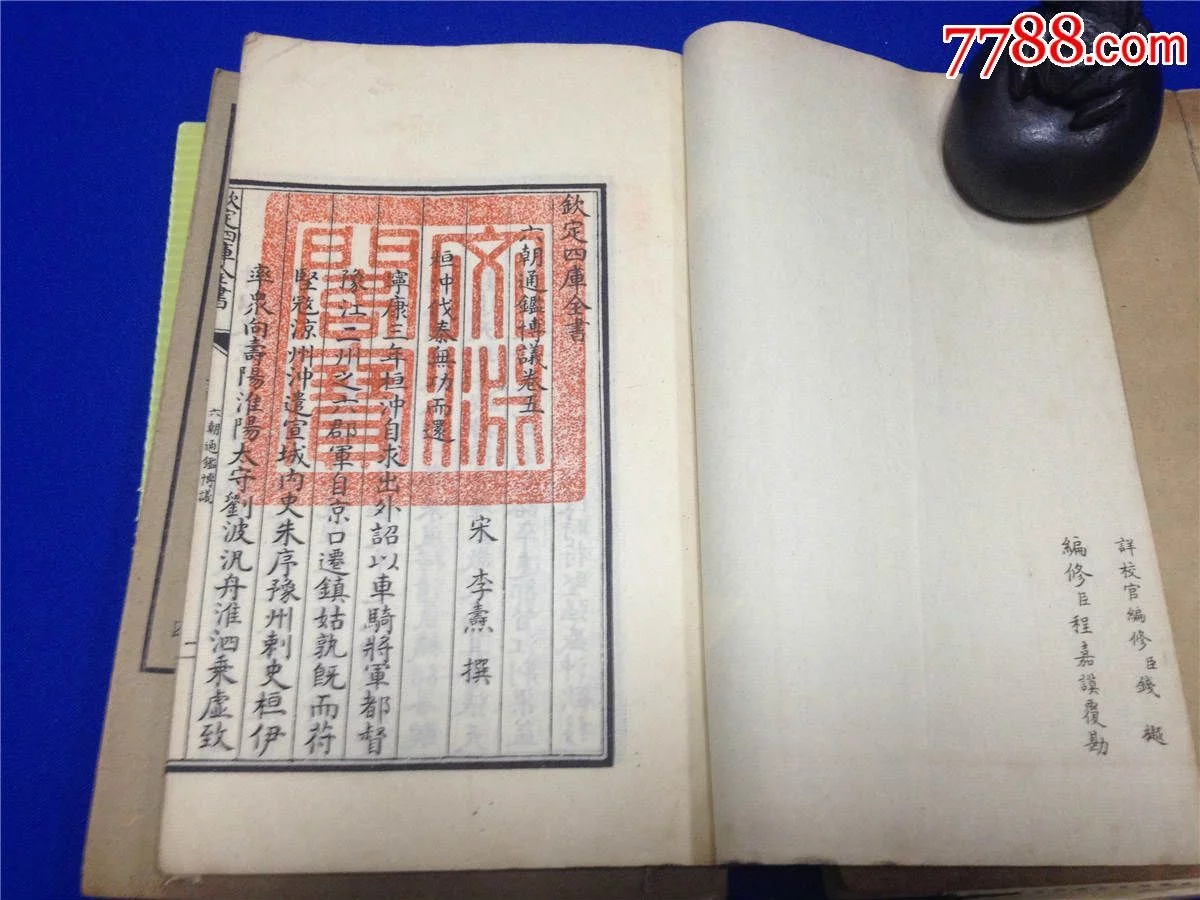 7788.com
詳校官編修臣錢樾
編修臣程嘉謨覆勘
欽定四庫全書
六朝通鑑博議卷五
宋 李燾 撰
桓冲伐秦無功而還
寧康三年桓冲自求出外詔以車騎將軍都督
豫江二州之六郡軍自京口遷鎮姑孰既而苻
堅宼涼州冲遣宣城内史朱序豫州刺史桓伊
率衆向壽陽淮陽太守劉波汎舟淮泗乗虚致
欽定四庫全書
六朝通鑑博議
文淵閣寳